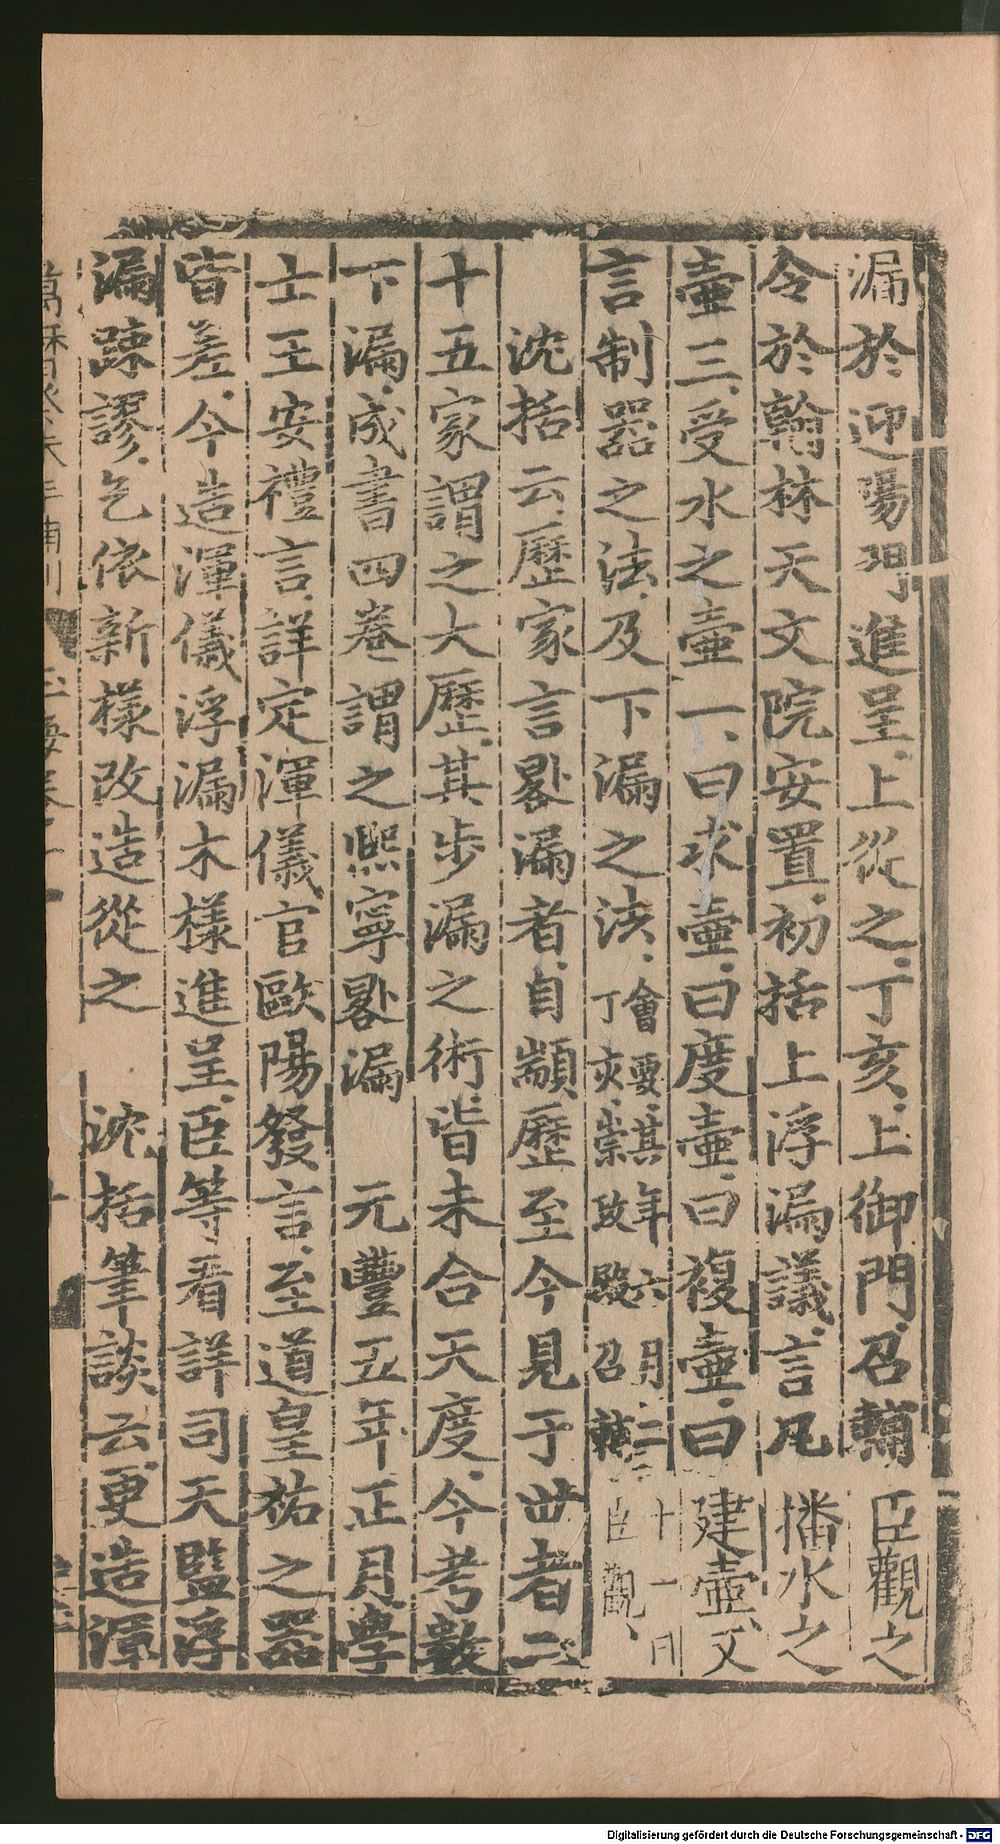 漏於迎陽門進呈上從之丁亥上御門召輔臣觀之
令於翰林天文院安置初括上浮漏議言凡播水之
壷三受水之壷一曰求壷曰度壷曰複壷曰建壷又
言制器之法及下漏之法會要其年六月二十一日
丁亥崇政殿召輔臣觀
沈括云歷家言晷漏者自顓歷至今見于世者二
十五家謂之大歷其步漏之術皆未合天度今考數
下漏成書四卷謂之熙寧晷漏 元豐五年正月學
士王安禮言詳定渾儀官歐陽發言至道皇祐之器
皆差今造渾儀浮漏木樣進呈臣等看詳司天監浮
漏踈謬乞依新樣改造從之 沈括筆談云更造渾
萬曆癸未年補刊
玉海卷十一
Digitalisierung gefördert durch die Deutsche Forschungsgemeinschaft - DFG